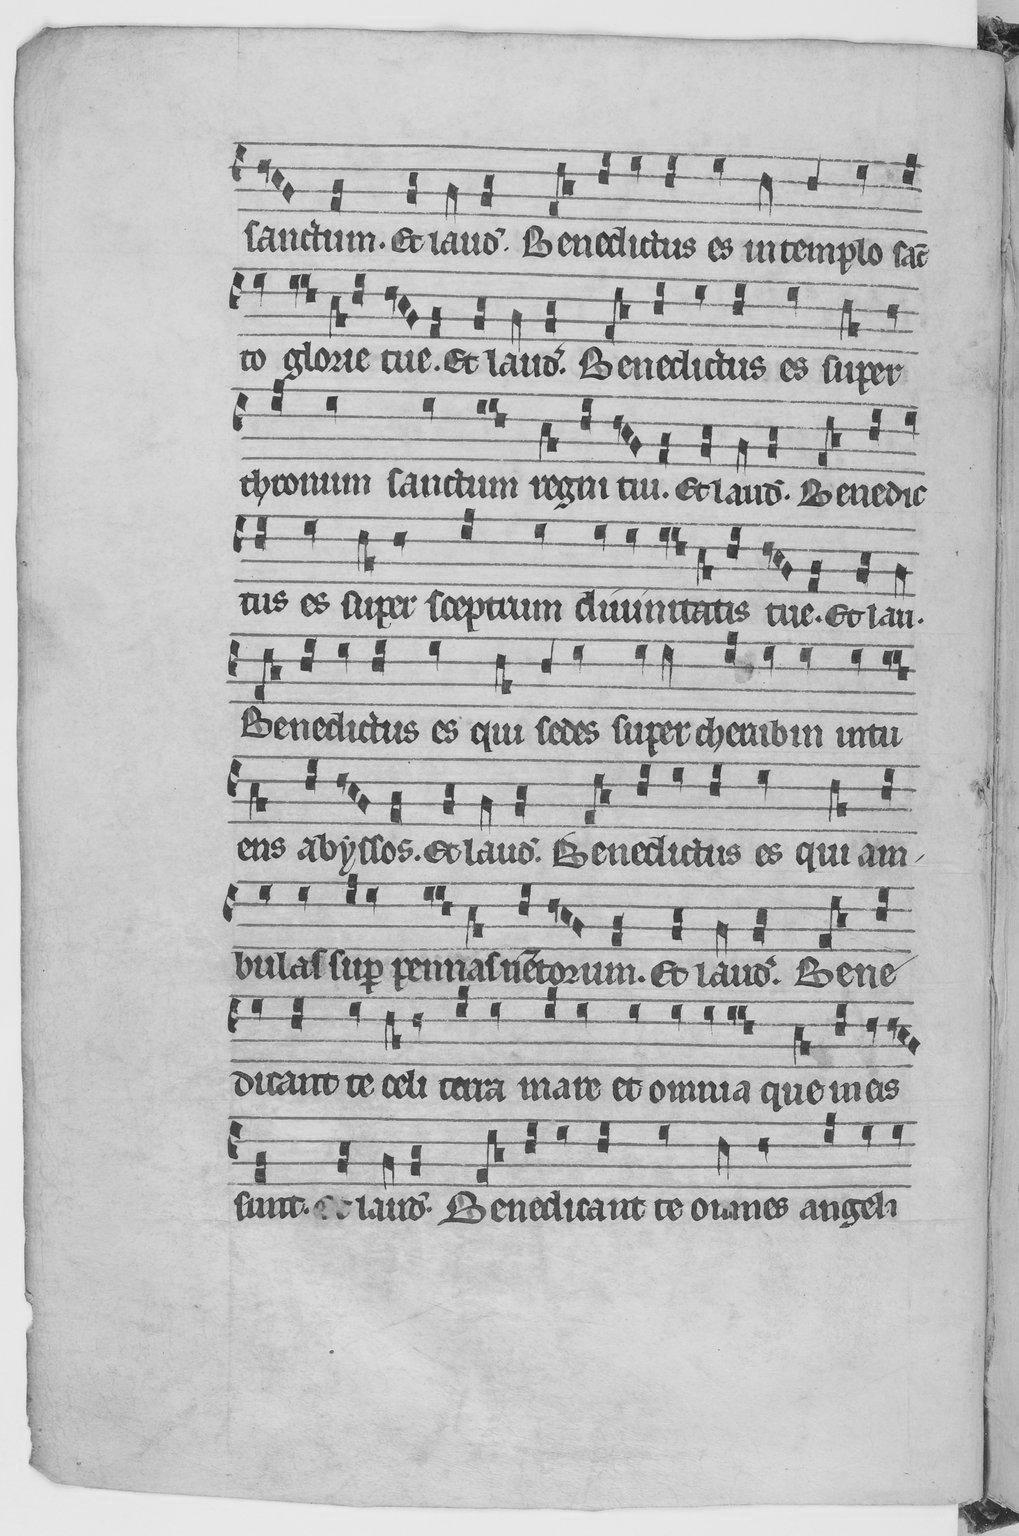 sanctum. Et laud. Benedictus es in templo sāc
to glorie tue. Et laud. Benedictus es super
thronum sanctum regni tui. Et laud. Benedic
tus es super sceptrum diuinitatis tue. Et lau.
Benedictus es qui sedes super cherubin intu
ens abyssos. Et laud. Benedictus es qui am
bulas sup pennas uētorum. Et laud. Bene
dicant te celi terra mare et omnia que in eis
sunt. Et laud. Benedicant te omnes angeli